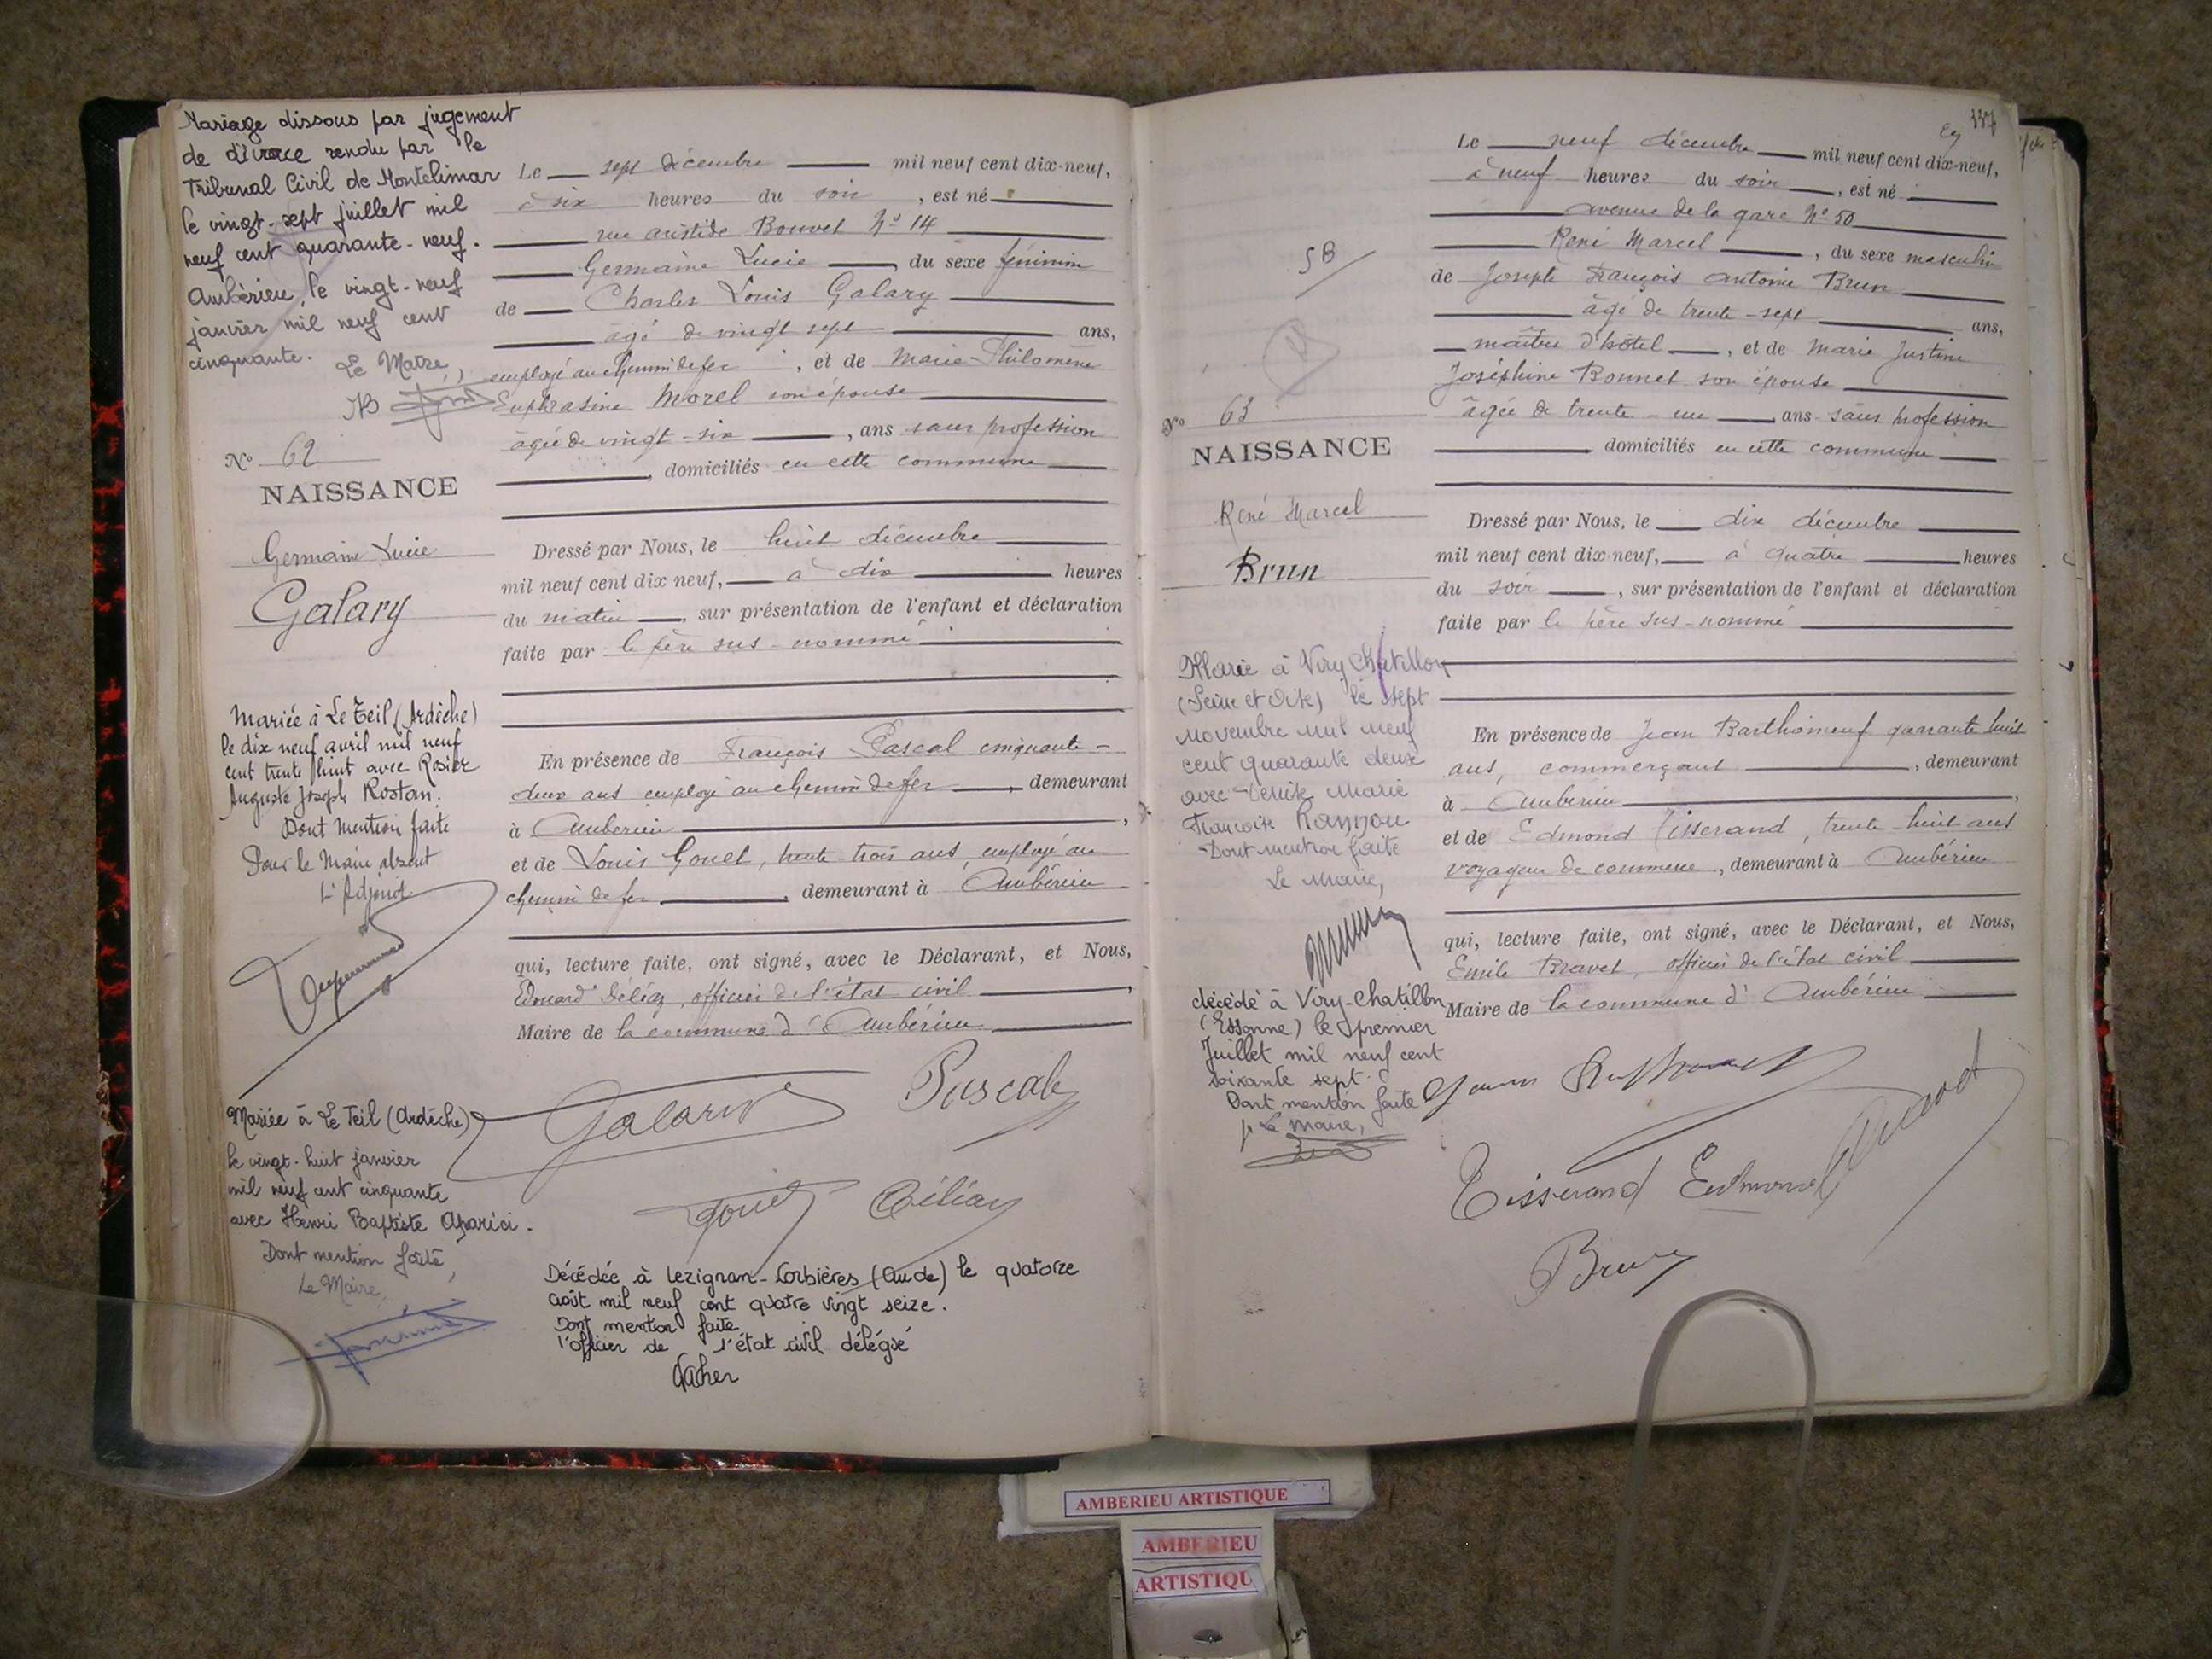 Mariage dissous par jugement
de divorce rendu par le
Tribunal Civil de Montelimar
le vingt-sept juillet mil
neuf cent quarante-neuf.
Ambérieu, le vingt-neuf
janvier mil neuf cent
cinquante.
Le Maire,
N° 62
NAISSANCE
Germaine Lucie
Galary
Mariée à Le Teil (Ardèche)
le dix neuf avril mil neuf
cent trente huit avec Rosier
Auguste Joseph Rostan.
Dont mention faite
Pour le Maire absent
L'Adjoint
Mariée à Le Teil (Ardèche)
le vingt-huit janvier
mil neuf cent cinquante
avec Henri Baptiste Aparici.
Dont mention faite,
Le Maire,
Le sept décembre mil neuf cent dix-neuf,
à six heures du soir, est né
rue aristide Bouvet N° 14
Germaine Lucie, du sexe féminin
de Charles Louis Galary
âgé de vingt sept ans,
employé au chemin de fer, et de Marie-Philomène
Euphrasine Morel son épouse
âgée de vingt-six, ans sans profession
, domiciliés en cette commune
Dressé par Nous, le huit décembre
mil neuf cent dix neuf, à dix heures
du matin, sur présentation de l'enfant et déclaration
faite par le père sus-nommé
En présence de François Pascal cinquante-
deux ans employé au chemin de fer, demeurant
à Ambérieu,
et de Louis Gouet, trente trois ans, employé au
chemin de fer, demeurant à Ambérieu
qui, lecture faite, ont signé, avec le Déclarant, et Nous,
Edouard Déléaz, officier de l'état civil,
Maire de la commune d'Ambérieu
Galary Pascal
Gouet Déléaz
Décédée à Lezignan-Corbières (Aude) le quatorze
août mil neuf cent quatre vingt seize.
Dont mention faite
l'officier de l'état civil délégué
137
SB
N° 63
NAISSANCE
René Marcel
Brun
Marié à Viry Chatillon
(Seine et Oise) le sept
novembre mil neuf
cent quarante deux
avec Denise Marie
Françoise
Dont mention faite
Le Maire,
décédé à Viry-Chatillon
(Essonne) le premier
Juillet mil neuf cent
soixante sept.
Dont mention faite
p. Le Maire,
Le neuf décembre mil neuf cent dix-neuf,
à neuf heures du soir, est né
avenue de la gare N° 50
René Marcel, du sexe masculin
de Joseph François Antoine Brun
âgé de trente-sept ans,
maître d'hôtel, et de Marie Justine
Joséphine Bonnet son épouse
âgée de trente-un ans sans profession
domiciliés en cette commune
Dressé par Nous, le dix décembre
mil neuf cent dix-neuf, à quatre heures
du soir, sur présentation de l'enfant et déclaration
faite par le père sus-nommé
En présence de Jean Barthomeuf quarante huit
ans, commerçant, demeurant
à Ambérieu,
et de Edmond Tisserand, trente-huit ans
voyageur de commerce, demeurant à Ambérieu
qui, lecture faite, ont signé, avec le Déclarant, et Nous,
Emile Bravet, officier de l'état civil
Maire de la commune d'Ambérieu
Tisserand Edmond
Brun
AMBERIEU ARTISTIQUE
AMBERIEU
ARTISTIQU